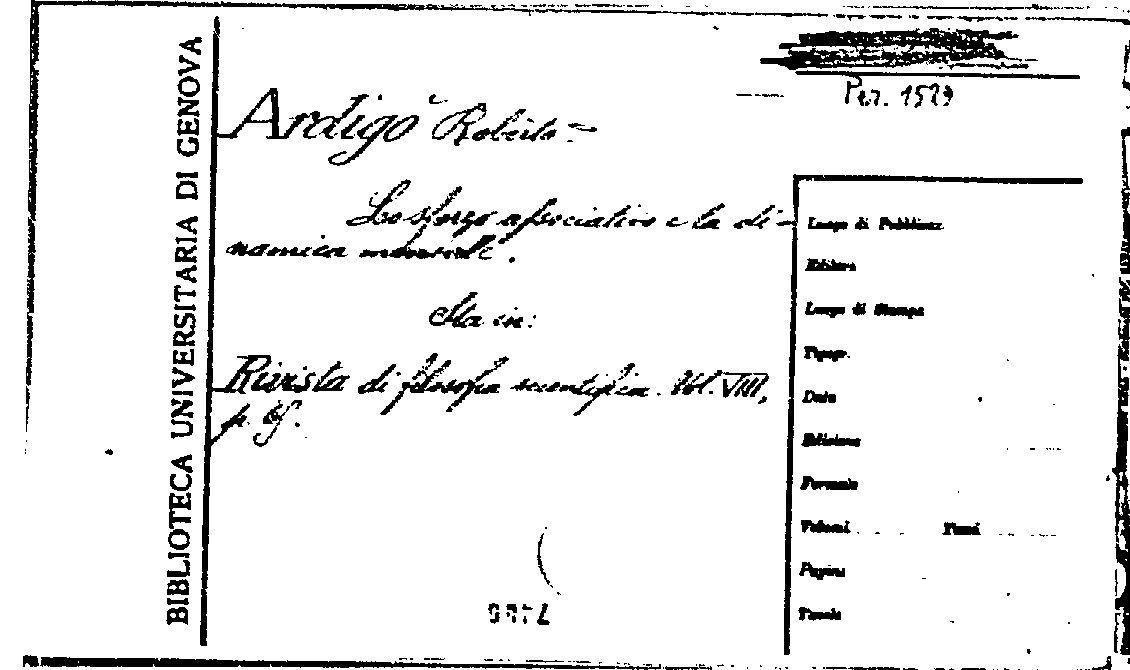 BIBLIOTECA UNIVERSITARIA DI GENOVA
Per. 1529
Ardigò Roberto =
Lo sforzo associativo e la di-
namica mentale.
Sta in:
Rivista di filosofia scientifica. Vol. VIII,
Luogo di Pubblicaz
Editore
Luogo di Stampa
Tipogr.
Data
Edizione
Formato
Volumi Tomi
Pagine
Tavole